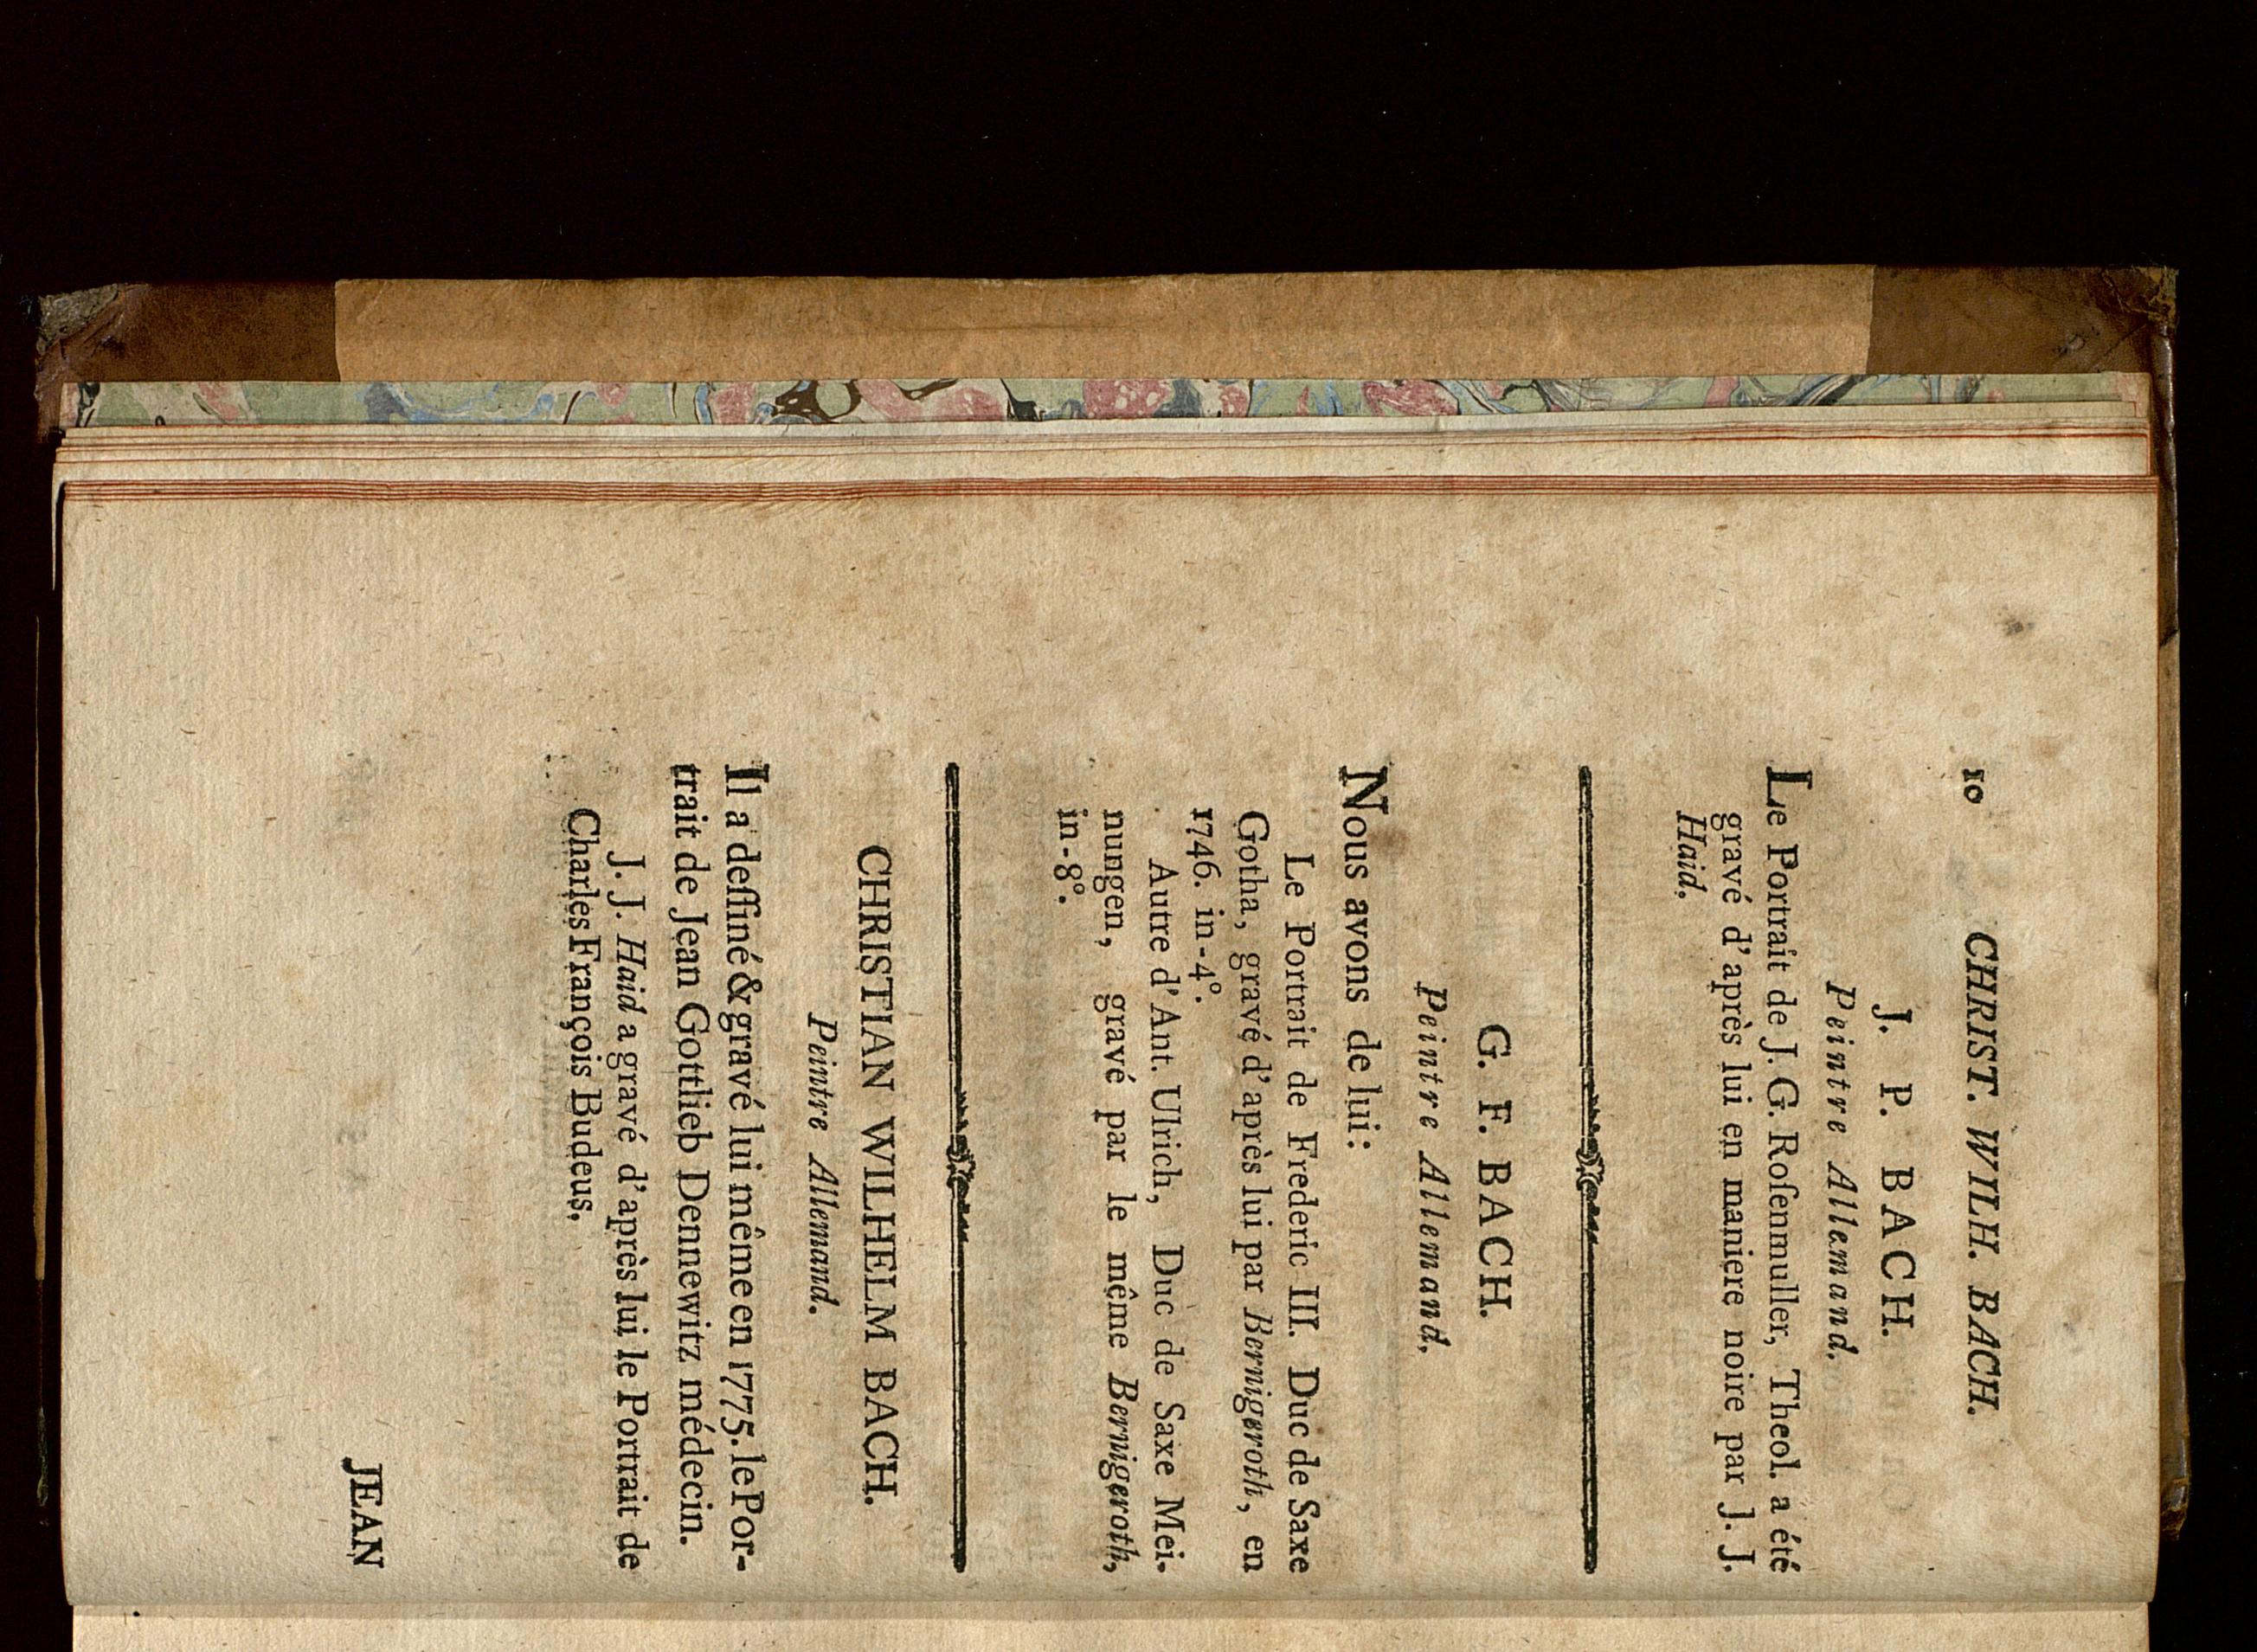 10 CHRIST. WILH. BACH.
J. P. BACH.
Peintre Allemand.
Le Portrait de J. G. Roſenmuller, Theol. a été
gravé d'après lui en maniere noire par J. J.
Haid.
G. F. BACH.
Peintre Allemand.
Nous avons de lui:
Le Portrait de Frederic III. Duc de Saxe
Gotha, gravé d'après lui par Bernigeroth, en
1746. in-4°.
Autre d'Ant. Ulrich, Duc de Saxe Mei-
nungen, gravé par le même Bernigeroth,
in-8°.
CHRISTIAN WILHELM BACH.
Peintre Allemand.
Il a deſſiné & gravé lui même en 1775. le Por-
trait de Jean Gottlieb Dennewitz médecin.
J. J. Haid a gravé d'après lui le Portrait de
Charles François Budeus.
JEAN